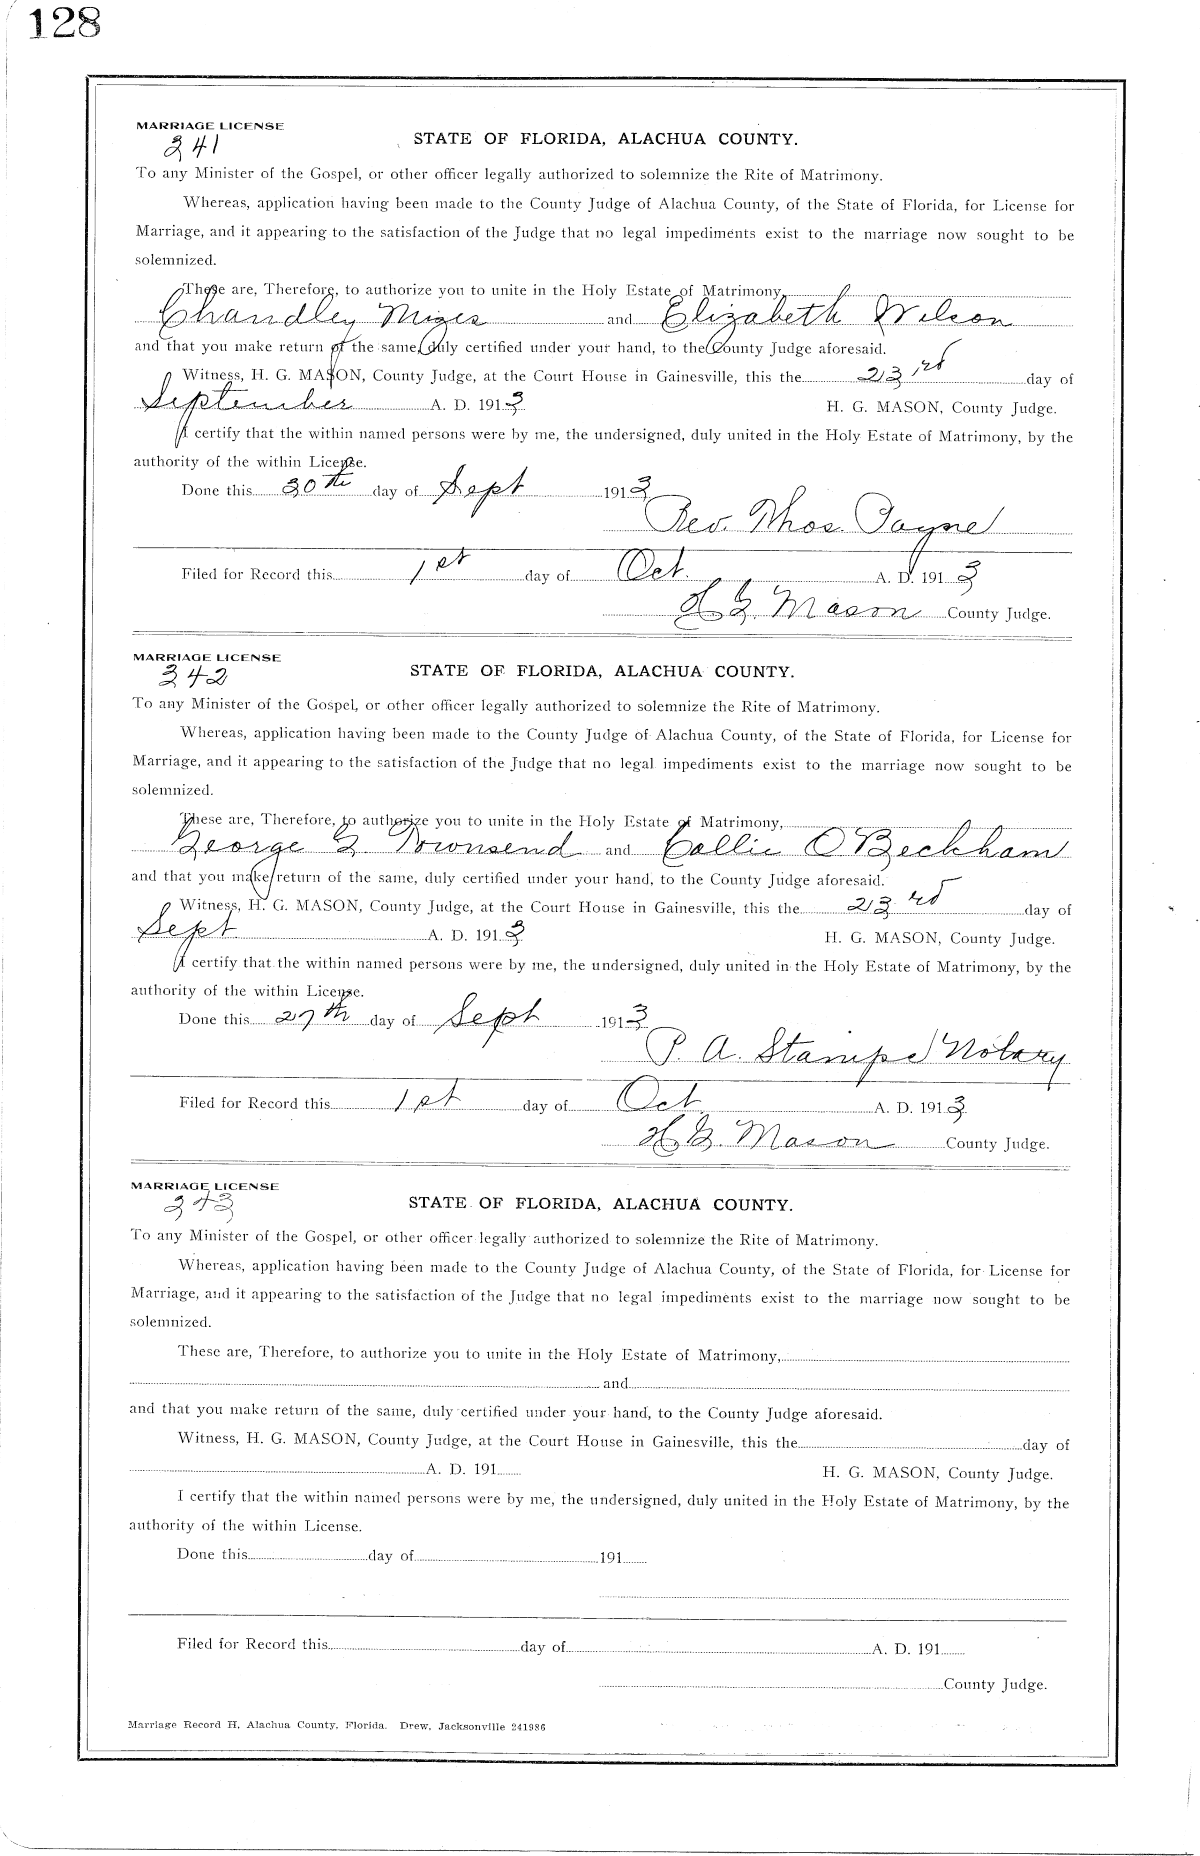 128
MARRIAGE LICENSE
341
STATE OF FLORIDA, ALACHUA COUNTY.
To any Minister of the Gospel, or other officer legally authorized to solemnize the Rite of Matrimony.
Whereas, application having been made to the County Judge of Alachua County, of the State of Florida, for License for
Marriage, and it appearing to the satisfaction of the Judge that no legal impediments exist to the marriage now sought to be
solemnized.
These are, Therefore, to authorize you to unite in the Holy Estate of Matrimony
Chandley Mizes and Elizabeth Wilson
and that you make return of the same, duly certified under your hand, to the County Judge aforesaid.
Witness, H. G. MASON, County Judge, at the Court House in Gainesville, this the 23rd day of
September A. D. 1913 H. G. MASON, County Judge.
I certify that the within named persons were by me, the undersigned, duly united in the Holy Estate of Matrimony, by the
authority of the within License.
Done this 30th day of Sept 1913
Rev. Thos. Payne
Filed for Record this 1st day of Oct. A. D. 1913
H G. Mason County Judge.
MARRIAGE LICENSE
342
STATE OF FLORIDA, ALACHUA COUNTY.
To any Minister of the Gospel, or other officer legally authorized to solemnize the Rite of Matrimony.
Whereas, application having been made to the County Judge of Alachua County, of the State of Florida, for License for
Marriage, and it appearing to the satisfaction of the Judge that no legal impediments exist to the marriage now sought to be
solemnized.
These are, Therefore, to authorize you to unite in the Holy Estate of Matrimony,
George G Townsend and Collie O Beckham
and that you make return of the same, duly certified under your hand, to the County Judge aforesaid.
Witness, H. G. MASON, County Judge, at the Court House in Gainesville, this the 23rd day of
Sept A. D. 1913 H. G. MASON, County Judge.
I certify that the within named persons were by me, the undersigned, duly united in the Holy Estate of Matrimony, by the
authority of the within License.
Done this 27th day of Sept 1913
P. A. Stamps Notary
Filed for Record this 1st day of Oct. A. D. 1913
H. G. Mason County Judge.
MARRIAGE LICENSE
343
STATE OF FLORIDA, ALACHUA COUNTY.
To any Minister of the Gospel, or other officer legally authorized to solemnize the Rite of Matrimony.
Whereas, application having been made to the County Judge of Alachua County, of the State of Florida, for License for
Marriage, and it appearing to the satisfaction of the Judge that no legal impediments exist to the marriage now sought to be
solemnized.
These are, Therefore, to authorize you to unite in the Holy Estate of Matrimony,
and
and that you make return of the same, duly certified under your hand, to the County Judge aforesaid.
Witness, H. G. MASON, County Judge, at the Court House in Gainesville, this the day of
A. D. 191 H. G. MASON, County Judge.
I certify that the within named persons were by me, the undersigned, duly united in the Holy Estate of Matrimony, by the
authority of the within License.
Done this day of 191
Filed for Record this day of A. D. 191
County Judge.
Marriage Record H, Alachua County, Florida. Drew, Jacksonville 241986